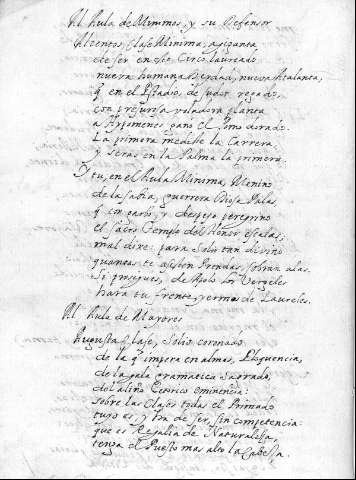 Al Aula de Minimos, y su Defensor
Alientos, Clase Minima, agiganta,
de ser en este Circo laureado
nueva humana Deidad, nueva Atalanta,
q̃ en el Estadio, de sudor regado,
con presurosa voladora planta
a Hypomenes ganò el Pomo dorado.
La primera medìste la Carrera,
y seràs en la Palma la primera.
Y tu, en el Aula Minima, Menino
de la sabia, guerrera Diosa Palas,
q̃ con garbo, y despejo peregrino
el sacro Templo del Honor escalas,
mal dixe: para Solio tan divino
quantas te assisten Prendas sobran alas.
Si prosigues, de Apolo los Vergeles
harà tu frente, yermos de Laureles.
Al Aula de Mayores
Augusta Clase, Solio coronado
de la q̃ impera en almas, Eloquencia,
de la gala gramatica Sagrado,
del aliño Retorico eminencia:
sobre las Clases todas el Primado
tuyo es, y ha de ser, sin competencia:
que es Regalia de Naturaleza,
tenga el Puesto mas alto la Cabessa,